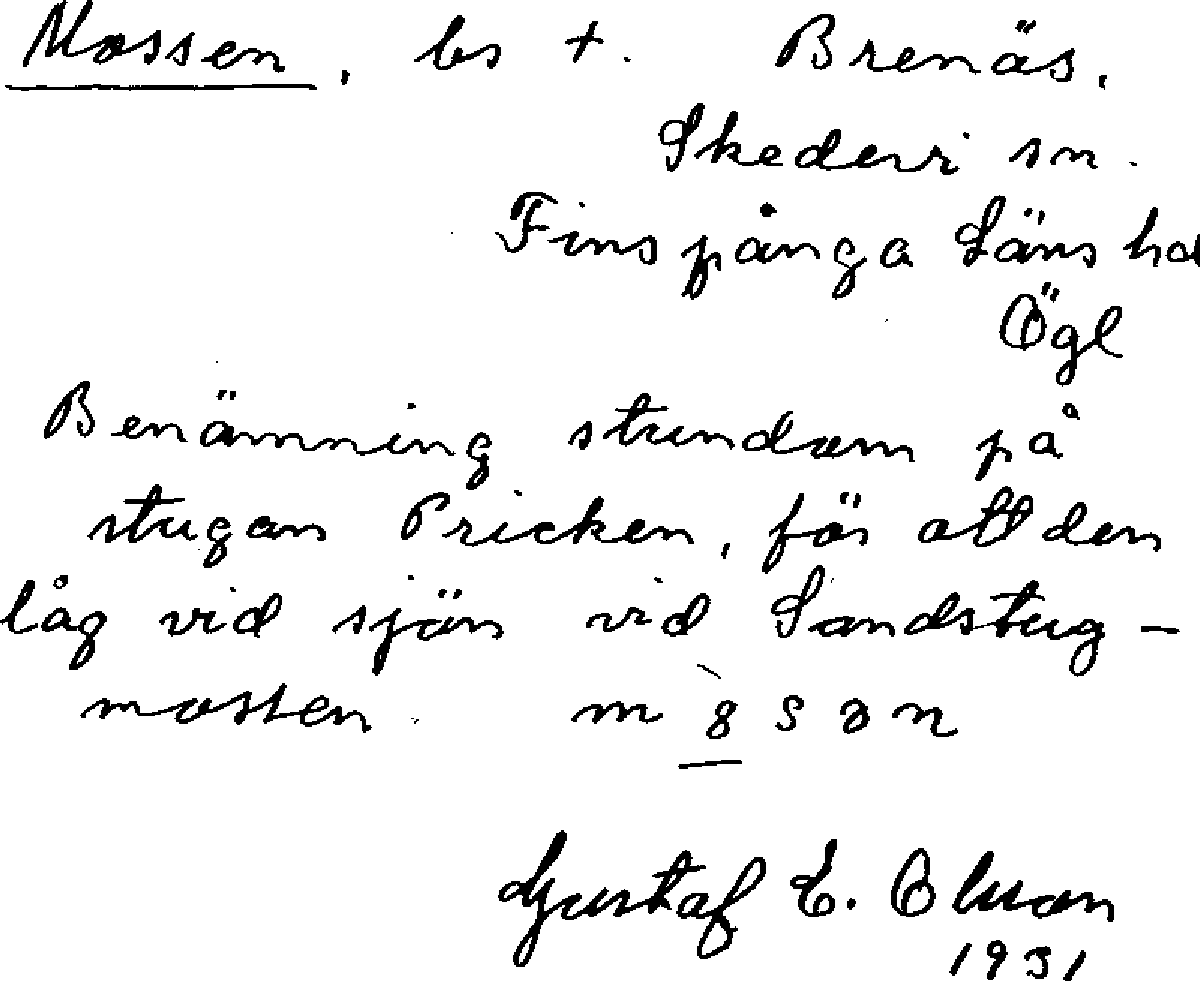 Mossen, bs +. Brenäs,
Skedevi sn.
Finspånga Läns hd
Ögl
Benämning stundom på
stugan Pricken, för att den
låg vid sjön vid Sandstug-
mossen.
Gustaf E. Olsson
1931